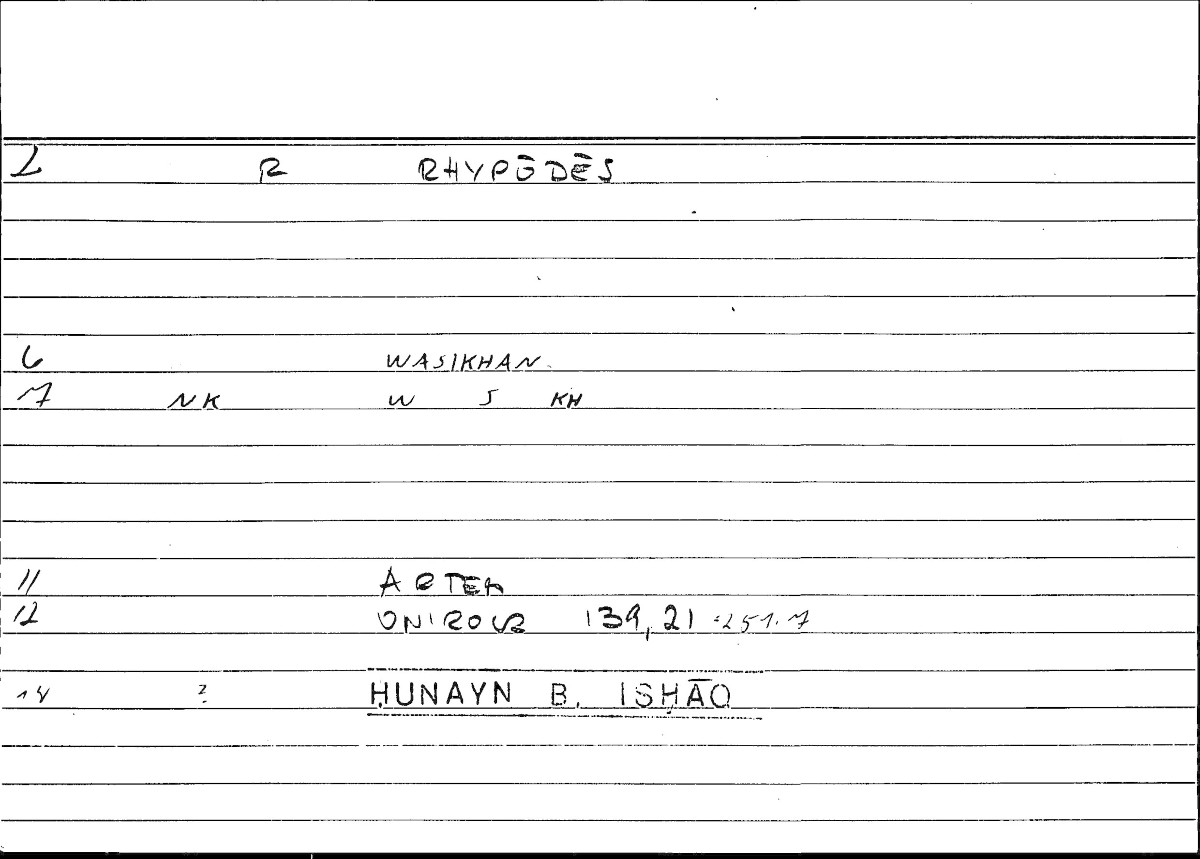 2 R RHYPŌDĒS
6 WASIKHAN
7 NK W S KH
11 ARTEM
12 ONIROCR 139,21 =251.7
14 ? ḤUNAYN B. ISḤĀQ